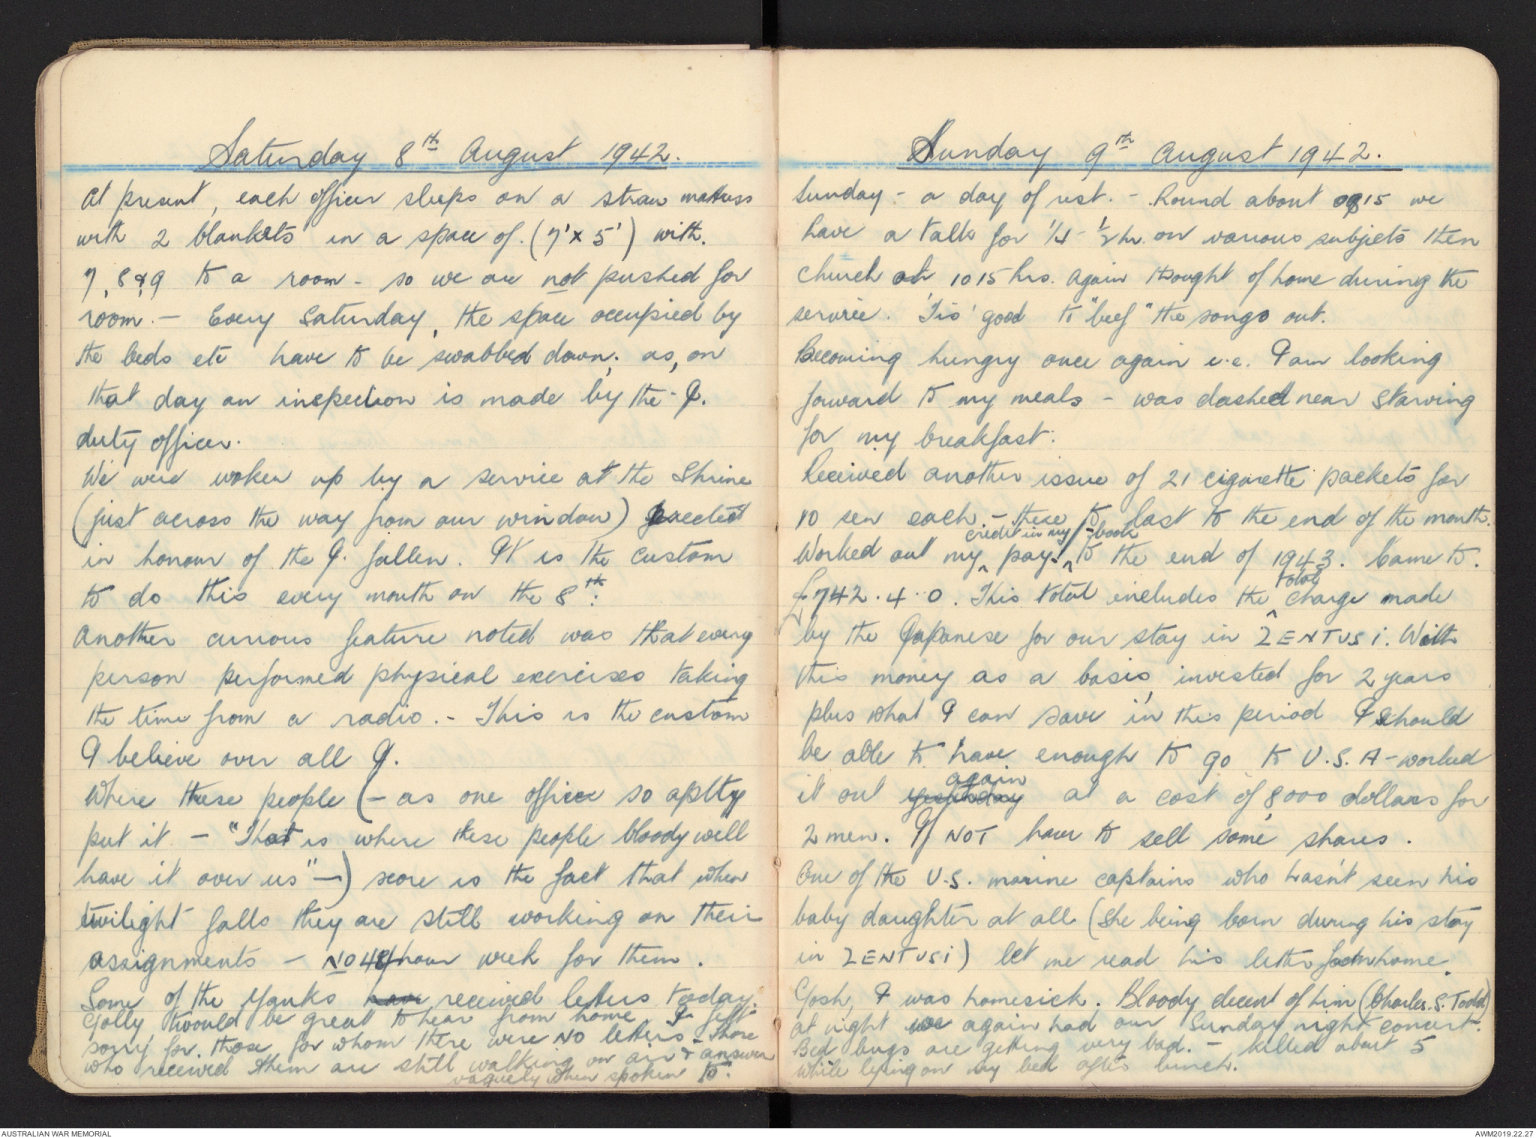 Saturday 8th August 1942.
At present, each officer sleeps on a straw mattress
with 2 blankets in a space of (7' x 5') with.
7, 8 & 9 to a room - so we are not pushed for
room. - Every Saturday, the space occupied by
the beds etc have to be swabbed down; as, on
that day an inspection is made by the J.
duty officer.
We were woken up by a service at the Shrine
(just across the way from our window) erected
in honour of the J. fallen. It is the custom
to do this every month on the 8th:
Another curious feature noted was that every
person performed physical exercises taking
the time from a radio. - This is the custom
I believe over all J.
Where these people (- as one officer so aptly
put it - "That is where these people bloody well
have it over us" -) score is the fact that when
twilight falls they are still working on their
assignments - NO 48 hour week for them.
Some of the Yanks have received letters today.
Golly twould be great to hear from home I felt
sorry for those for whom there were NO letters - those
who received them are still walking on air & answer
vaguely when spoken to.
Sunday 9th August 1942.
Sunday - a day of rest. - Round about 0915 we
have a talk for 1/4 - 1/2 hr. on various subjects then
church at 1015 hrs. Again thought of home during the
service. 'Tis' good to "beef" the songs out.
Becoming hungry once again i.e. I am looking
forward to my meals - was dashed near starving
for my breakfast.
Received another issue of 21 cigarette packets for
10 sen each - these to last to the end of the month.
credit in my -book
Worked out my pay to the end of 1943. Came to.
total
£742.4.0. This total includes the charge made
by the Japanese for our stay in ZENTUSI. With
this money as a basis, invested for 2 years
plus what I can save in this period I should
be able to have enough to go to U.S.A - worked
again
it out yesterday at a cost of 8000 dollars for
2 men. If NOT have to sell some shares.
One of the U.S. marine captains who hasn't seen his
baby daughter at all (she being born during his stay
in ZENTUSI) let me read his letter from home.
Gosh, I was homesick. Bloody decent of him (Charles. S. Todd)
at night we again had our Sunday night concert.
Bed bugs are getting very bad. - killed about 5
while lying on my bed after lunch.
AUSTRALIAN WAR MEMORIAL
AWM2019.22.27